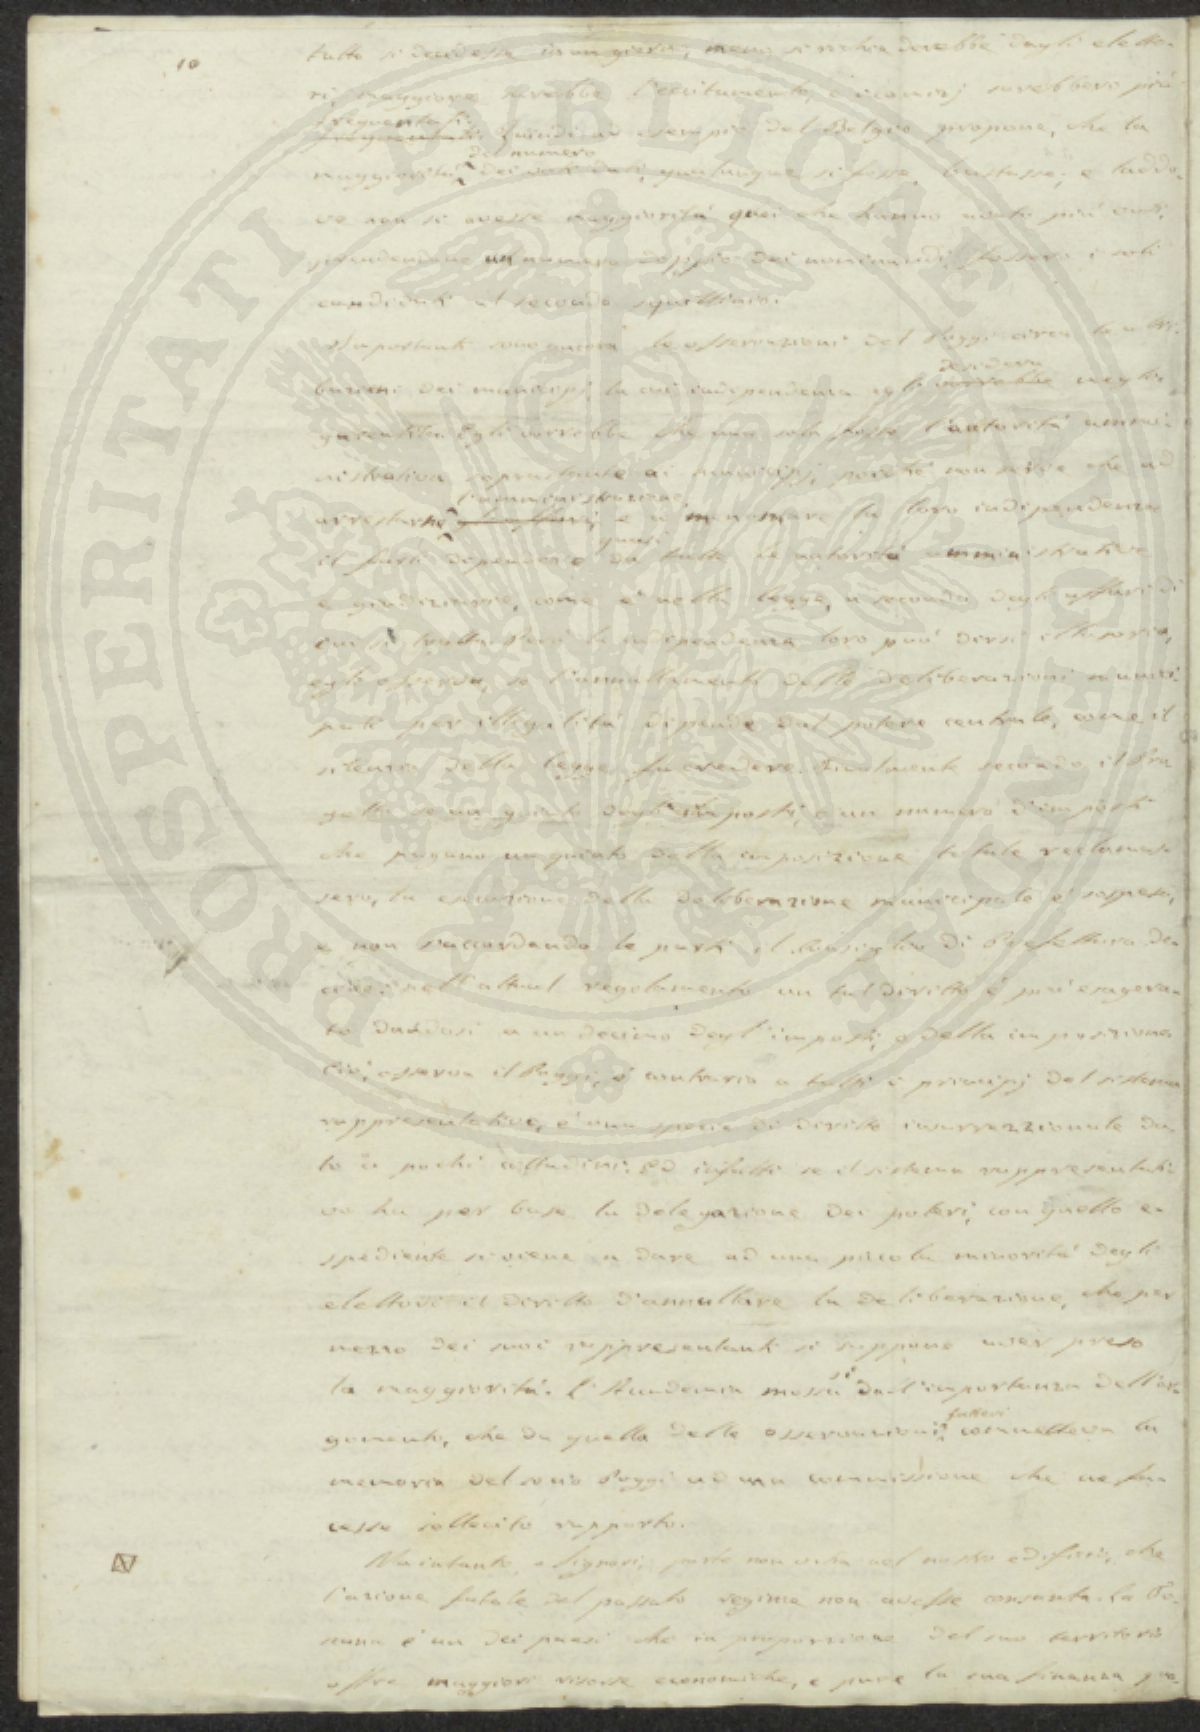 10
tutto si decidesse in un giorno, meno si richiederebbe dagli eletto-
ri, maggiore sarebbe l'eccitamento, e i comizj sarebbero più
frequentati.
frequentati. Quindi ad esempio del Belgio propone, che la
del numero
maggiorità dei voti dati, qualunque si fosse, bastasse; e laddo-
ve non si avesse maggiorità quei che hanno avuto più voti,
prendendone un numero doppio dei nominandi, fossero i soli
candidati al secondo squittinio.
Importanti sono ancora le osservazioni del Poggi circa le attri-
desidera
buzioni dei municipj la cui indipendenza egli vorrebbe meglio
garantita. Egli vorrebbe che una sola fosse l'autorità ammi-
nistrativa soprastante ai municipj, poichè non serve che ad
l'amministrazione,
arrestarne gli affari, e a menomare la loro indipendenza
quasi
il farli dipendere da tutte le autorità amministrative
e giudiziarie, come è nella legge, a seconda degli affari di
cui si tratta. Però la indipendenza loro può dirsi illusoria,
egli osserva, se l'annullamento delle deliberazioni munici-
pali per illegalità dipende dal potere centrale, come il
silenzio della legge fa credere. Finalmente secondo il Pro
getto se un quinto degli imposti, o un numero d'imposti
che pagano un quinto della imposizione totale reclamas-
sero, la esecuzione della deliberazione municipale è sospesa,
e non s'accordando le parti il Consiglio di Prefettura de-
cide: nell'attual regolamento un tal diritto è più esagera-
to dandosi a un decimo degl'imposti, o della imposizione.
Ciò, osserva il Poggi, è contrario a tutti i principj del sistema
rappresentativo, è una specie di diritto insurrezzionale da-
to a pochi cittadini. Ed infatti se il sistema rappresentati-
vo ha per base la delegazione dei poteri, con quello e-
spediente si viene a dare ad una piccola minorità degli
elettori il diritto d'annullare la deliberazione, che per
mezzo dei suoi rappresentanti si suppone aver preso
la maggiorità. L'Accademia mossa sì dall'importanza dell'ar-
fattevi
gomento, che da quella delle osservazioni, commetteva la
memoria del socio Poggi ad una commissione che ne fa-
cesse sollecito rapporto.
Ma intanto, o Signori, parte non v'era nel nostro edifizio, che
l'azione fatale del passato regime non avesse consunta. La To-
scana è un dei paesi che in proporzione del suo territorio
offre maggiori risorse economiche, e pure la sua finanza
PROSPERITATI PUBLICAE AUGENDAE